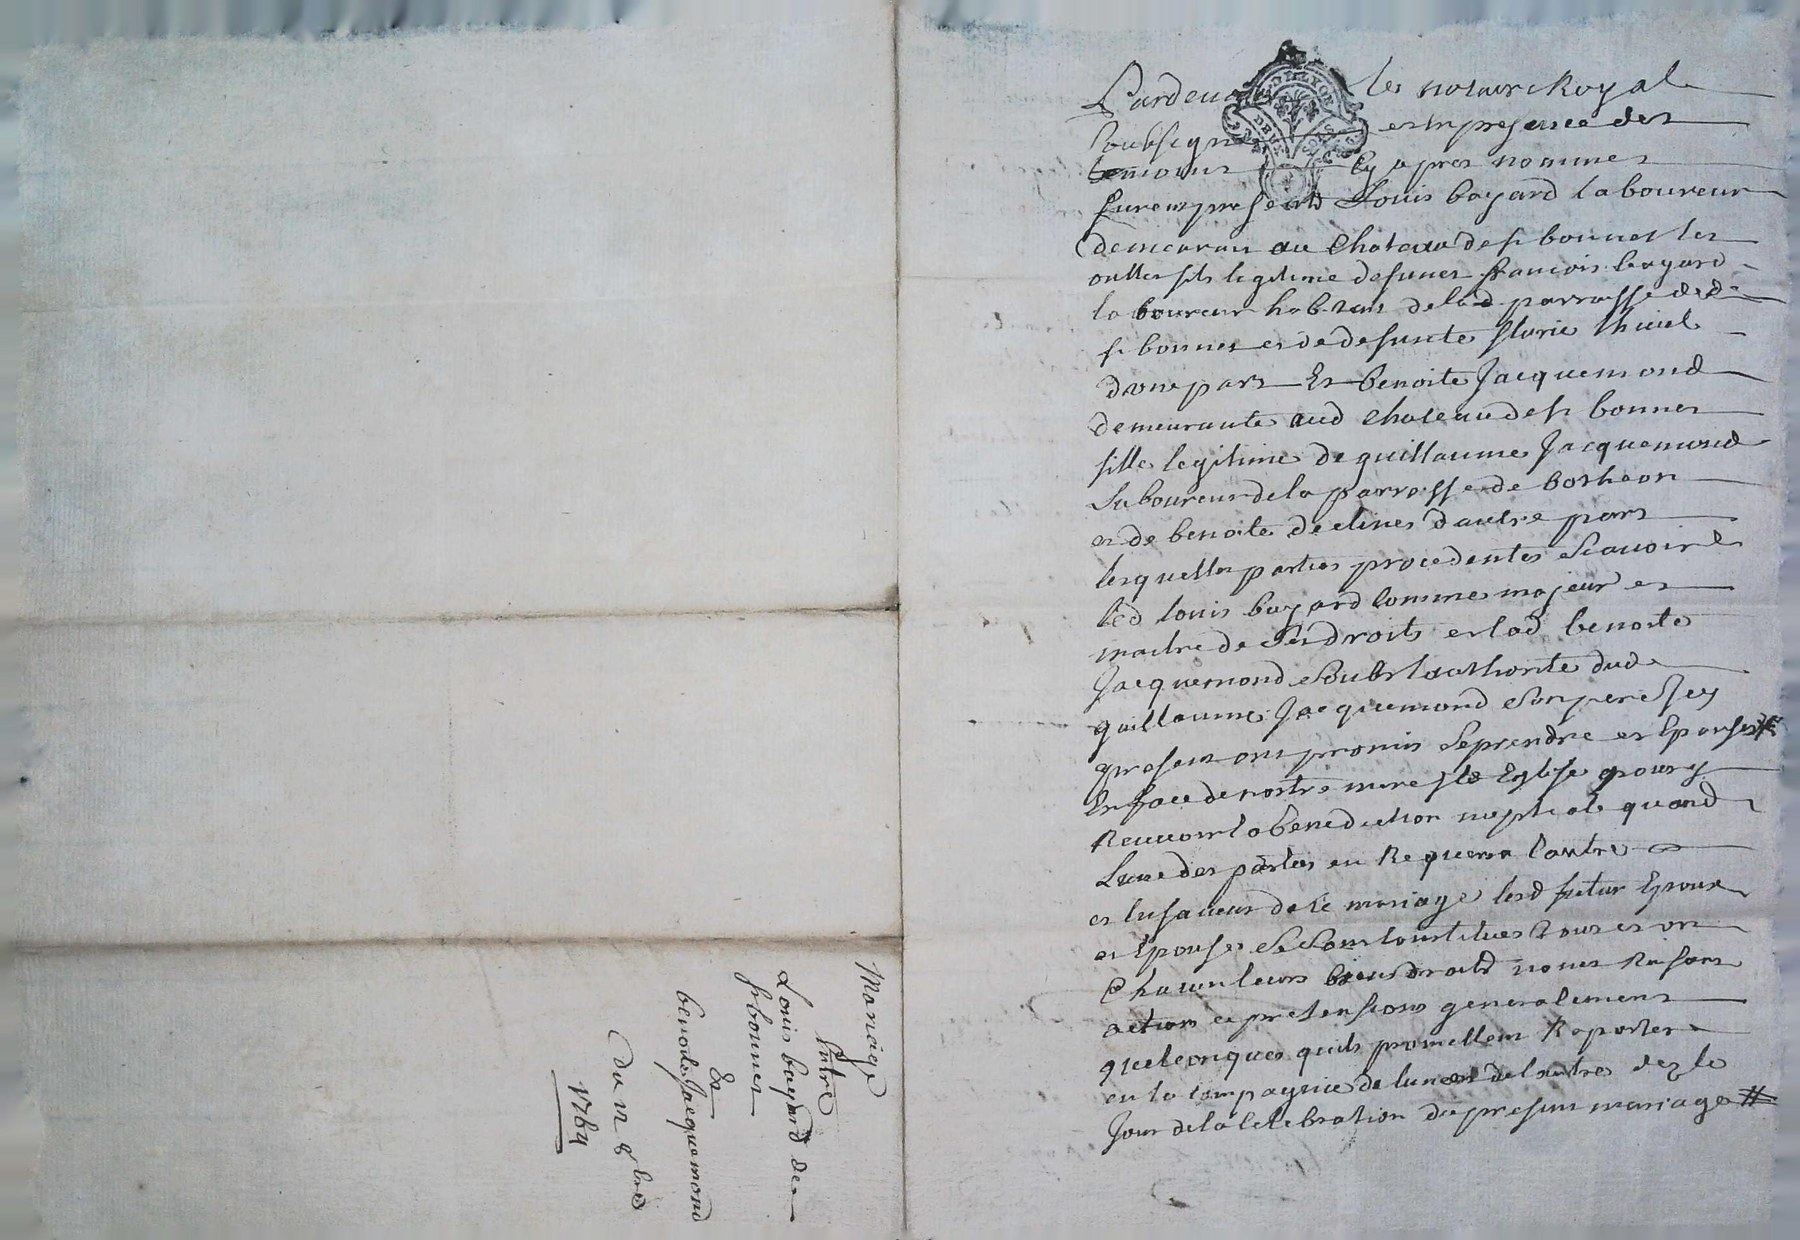 Pardevant les notaire Royal
Soubsigné et en presence des
temoins cy apres nommes
furent presents Louis bayard laboureur
demeurant au chateau de st bonnet les
oulles fils legitime defunct françois bayard
laboureur habitant de lad parroisse dud
st bonnet et de defunte florie thivel
dune part Et benoite Jacquemond
demeurante aud chateau de st bonnet
fille legitime de guillaume Jacquemond
Laboureur de la parroisse de botheon
et de benoite declines dautre part
lesquelles parties procedentes scavoir
led louis bayard comme majeur et
maitre de ses droits et lad benoite
Jacquemond soubs lauthorité dud
guillaume Jacquemond son pere icy
present ont promis se prendre et Epouser #
En face de nostre mere ste Eglise pour y
Recevoir la benediction nuptiale quand
Lune des parties en Requerra lautre
et En faveur de ce mariage lesd futur Epoux
et Epouse se sont constitues tous et un
Chacun leurs biens droits noms Raisons
actions et pretensions generalement
quelconques quils promettent Raporter
en la compagnie de lun et de lautre dez le
Jour de la celebration du present mariage #
Mariage
Entre
Louis bayard de
st bonnet
Et
benoite Jacquemond
Du 8bre
1764